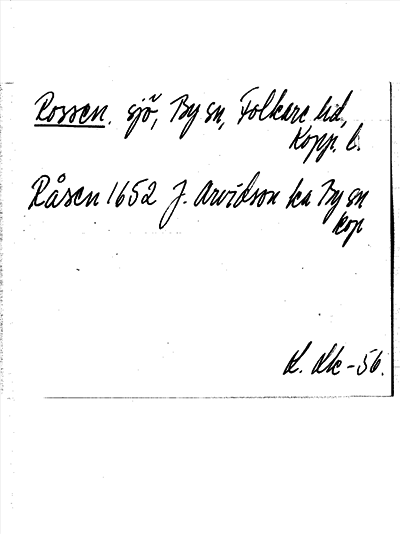 Rossen. sjö, By sn, Folkare hd,
Kopp. l.
Råsen 1652 J. Arvidson ka By sn
Kop